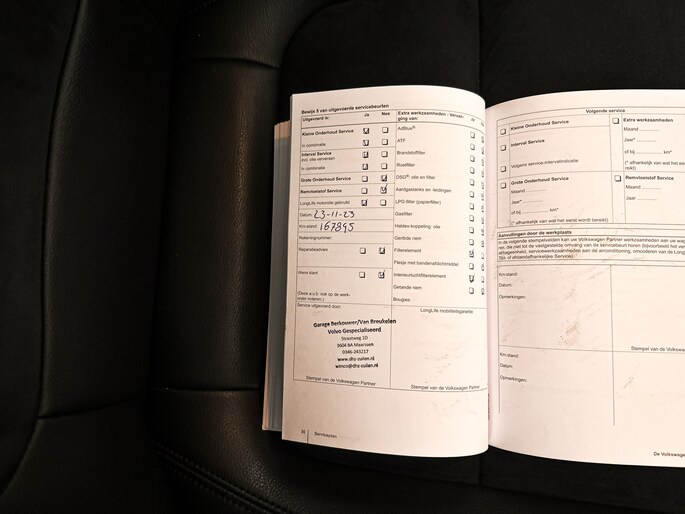 Bewijs 5 van uitgevoerde servicebeurten
Uitgevoerd is: Ja Nee
Kleine Onderhoud Service
In combinatie
Interval Service
incl. olie verversen
In combinatie
Grote Onderhoud Service
Remvloeistof Service
LongLife motorolie gebruikt
Datum: 23-11-23
Km-stand: 167895
Rekeningnummer:
Reparatieadvies
Wens klant
(Deze a.u.b. ook op de werk-
order noteren.)
Service uitgevoerd door:
Garage Berkouwer/Van Breukelen
Volvo Gespecialiseerd
Straatweg 10
3604 BA Maarssen
0346-243217
www.dtu-zuilen.nl
Stempel van de Volkswagen Partner
36 Serviceplan
Extra werkzaamheden - Vervan-
ging van:
AdBlue®
ATF
Brandstoffilter
Roetfilter
DSG®: olie en filter
Aardgastanks en -leidingen
LPG-filter (papierfilter)
Gasfilter
Haldex-koppeling: olie
Geribde riem
Filterelement
Flesje met bandenafdichtmiddel
Interieurluchtfilterelement
Getande riem
Bougies
LongLife mobiliteitsgarantie
Stempel van de Volkswagen Partner
Volgende service
Kleine Onderhoud Service
Interval Service
Volgens service-intervalindicatie
Grote Onderhoud Service
Jaar*
of bij km*
(* afhankelijk van wat het eerst wordt bereikt)
Extra werkzaamheden
Maand
Jaar*
of bij km*
(* afhankelijk van wat het
Remvloeistof Service
Maand
Jaar
Aanvullingen door de werkplaats
In de volgende stempelvelden kan uw Volkswagen Partner werkzaamheden aan uw
Km-stand:
Datum:
Opmerkingen:
Stempel van de Volkswagen
Km-stand:
Datum:
Opmerkingen:
De Volkswagen